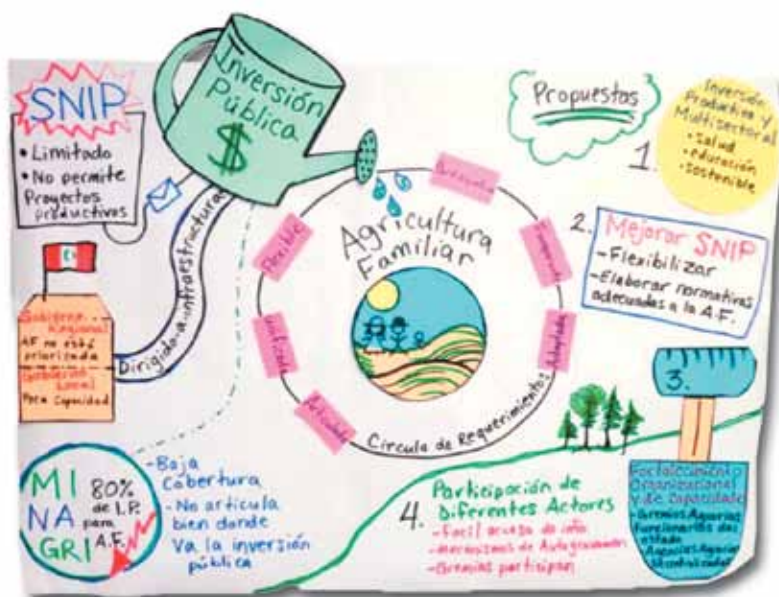 SNIP
• Limitado
• No permite
Proyectos
productivos
Inversión
Pública
$
Dirigido a infraestructura
Gobierno
Regional
AF no está
priorizada
Gobierno
Local
Poca Capacidad
MI
NA
GRI
80%
de I.P.
para
A.F.
- Baja
Cobertura
- No articula
bien donde
Va la inversión
pública
Agricultura
Familiar
Flexible
Adaptada
Articulada
Círculo de Requerimientos
Propuestas
1.
Inversión
Productiva y
Multisectorial
• salud
• educación
• sostenible
2.
Mejorar SNIP
- Flexibilizar
- Elaborar normativas
adecuadas a la A.F.
3.
Fortalecimiento
Organizacional
y de Capacidades
- Gremios Agrarios
funcionarios del
estado
- Agencias Agrarias
4.
Participación de
Diferentes Actores
- Facil acceso de info
- Mecanismos de
- Gremios participan